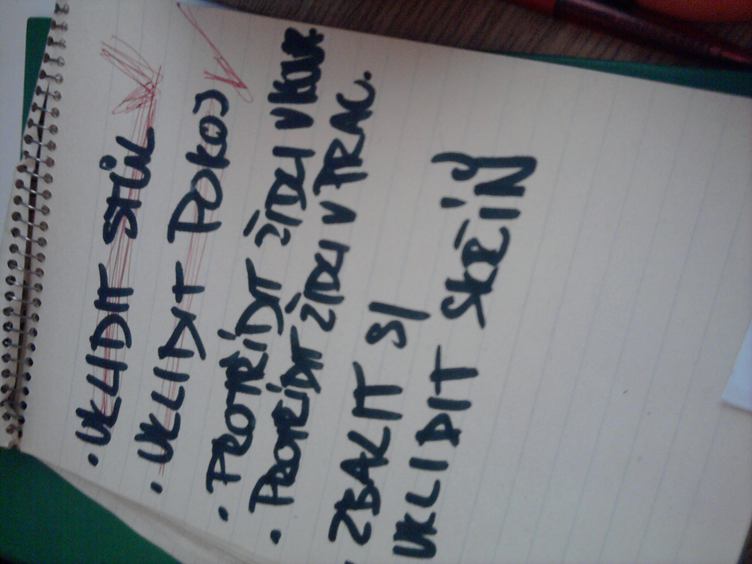 • UKLIDIT STŮL
• UKLIDIT POKOJ
• PROTŘÍDIT ŽIDLI V KOUP.
• PROTŘÍDIT ŽIDLI V PRAC.
• ZBALIT SI
UKLIDIT SKŘÍŇ